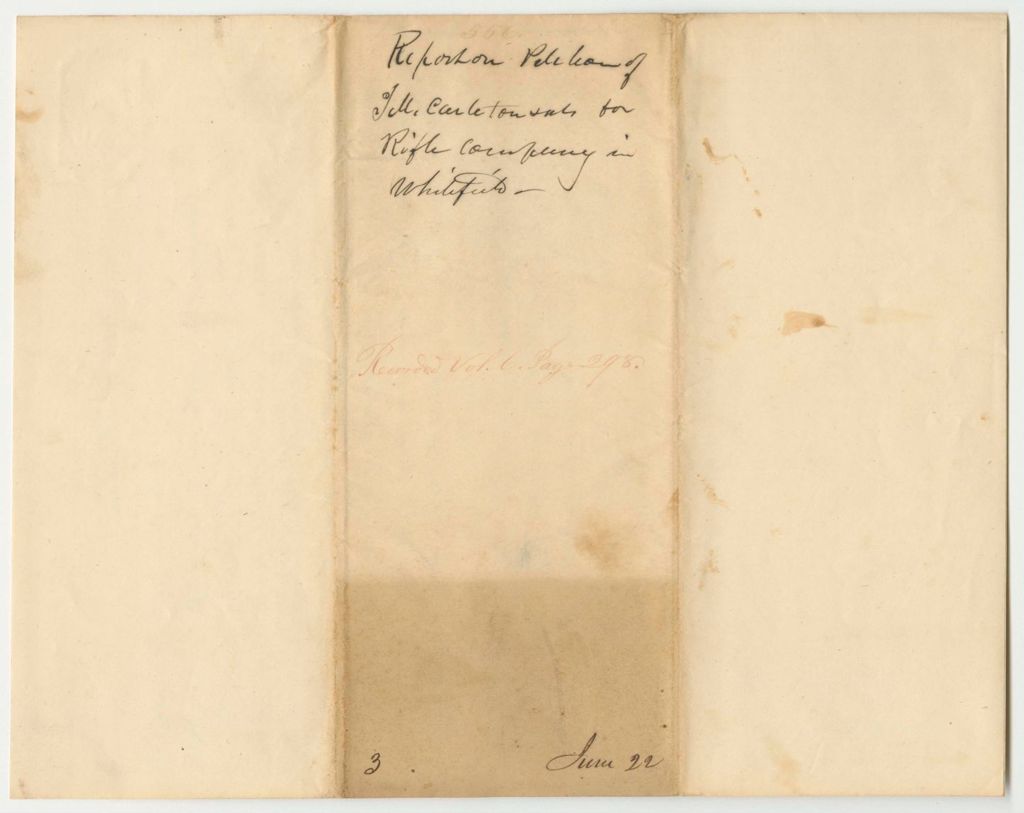 Report on Petition of
Carleton & als for
Rifle Company in
Whitefield —
Recorded Vol. 6. Page 298.
3
June 22